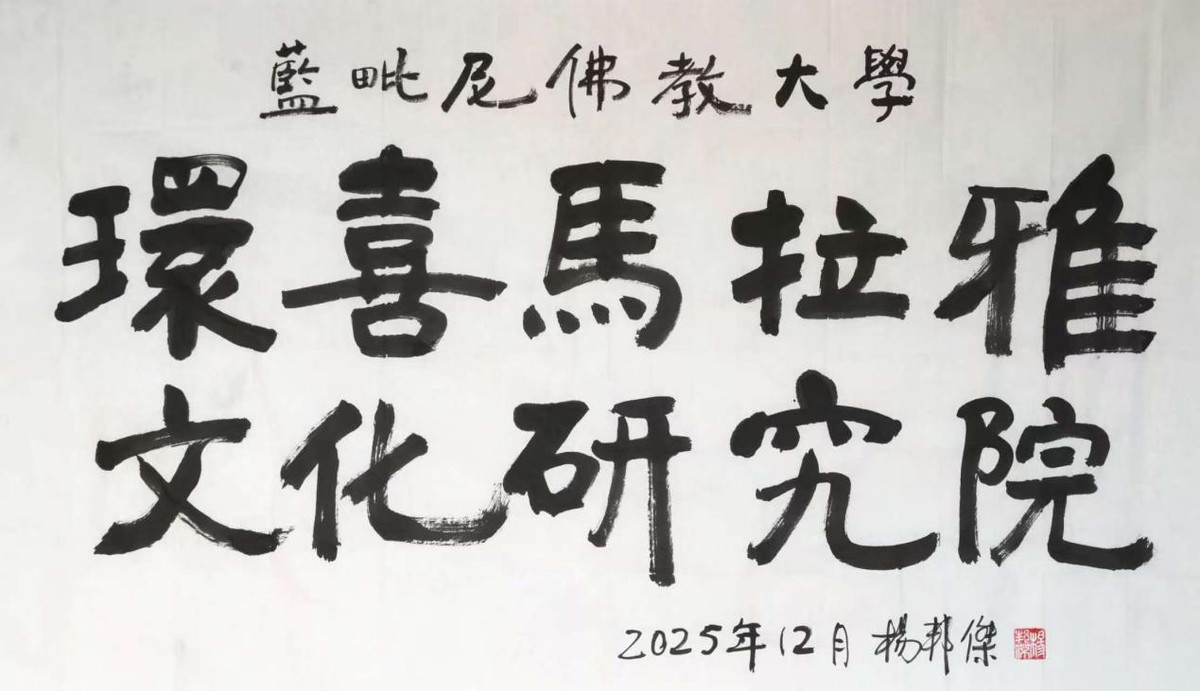 藍毗尼佛教大學
環喜馬拉雅
文化研究院
2025年12月 楊邦傑